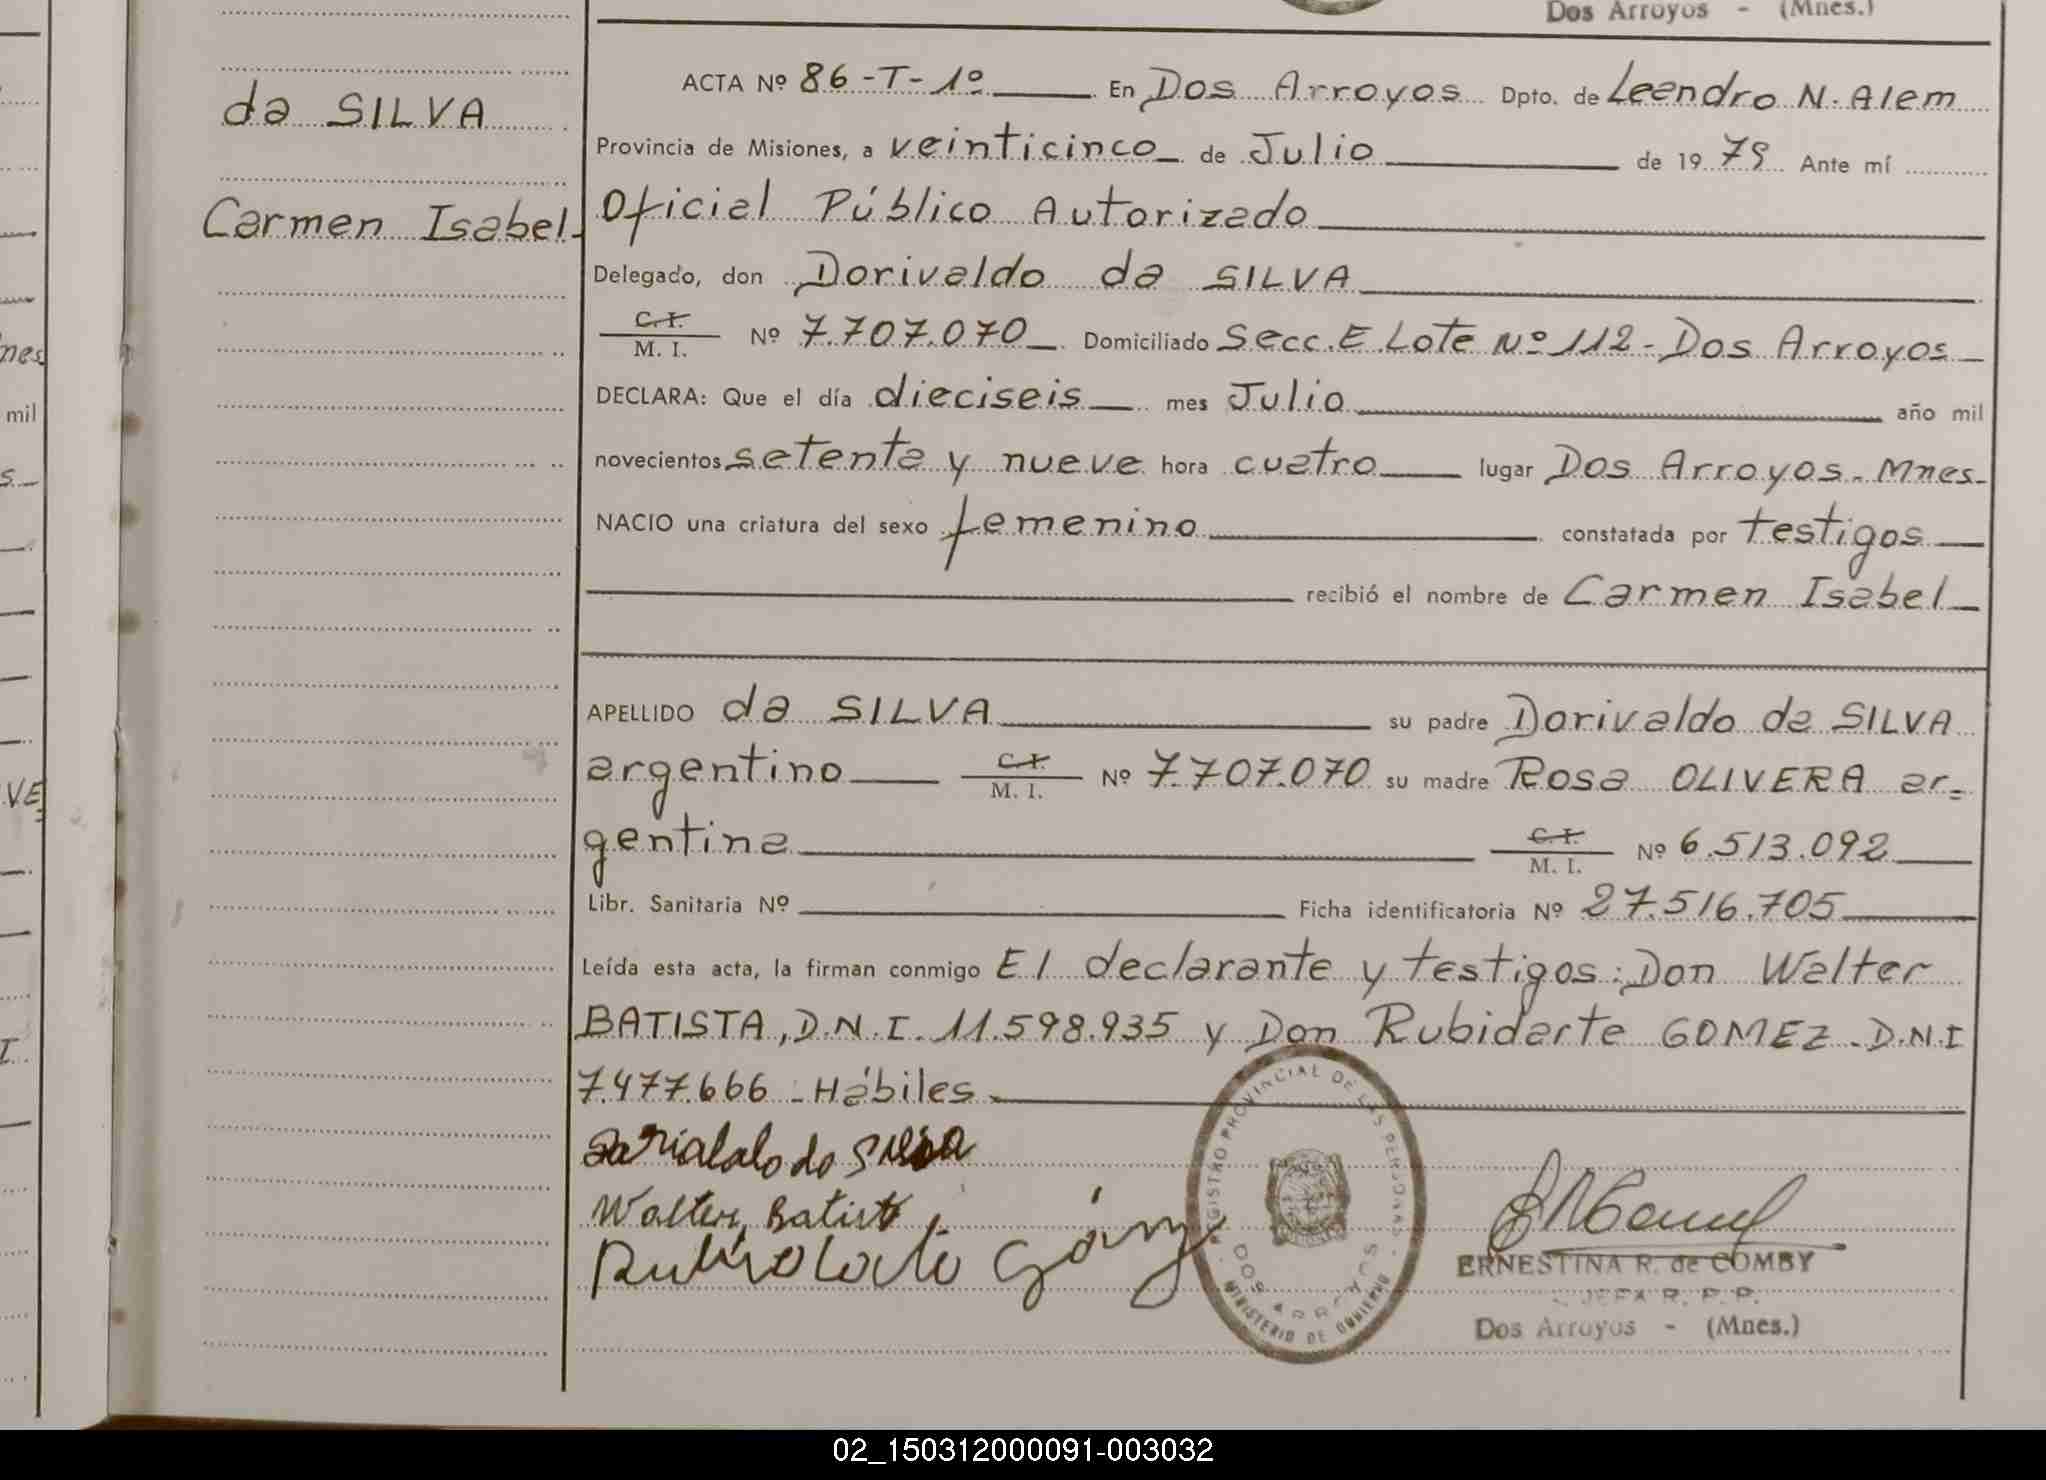 Dos Arroyos - (Mnes.)
da SILVA
Carmen Isabel
ACTA Nº 86-T-1º En Dos Arroyos Dpto. de Leandro N. Alem
Provincia de Misiones, a veinticinco de Julio de 1979 Ante mí
Oficial Público Autorizado
Delegado, don Dorivaldo da SILVA
C.I. M. I. Nº 7.707.070 Domiciliado Secc. E Lote Nº 112 - Dos Arroyos
DECLARA: Que el día dieciseis mes Julio año mil
novecientos setenta y nueve hora cuatro lugar Dos Arroyos - Mnes.
NACIO una criatura del sexo femenino constatada por testigos
recibió el nombre de Carmen Isabel
APELLIDO da SILVA su padre Dorivaldo da SILVA
argentino C.I. M. I. Nº 7.707.070 su madre Rosa OLIVERA ar=
gentina C.I. M. I. Nº 6.513.092
Libr. Sanitaria Nº Ficha identificatoria Nº 27.516.705
Leída esta acta, la firman conmigo El declarante y testigos: Don Walter
BATISTA, D.N.I. 11.598.935 y Don Rubidarte GOMEZ - D.N.I
7.477.666 - Hábiles
Walter Batist
Gómz
REGISTRO PROVINCIAL DE LAS PERSONAS
DOS ARROYOS
MINISTERIO DE GOBIERNO
ERNESTINA R. de COMBY
JEFA R. P. P.
Dos Arroyos - (Mnes.)
nes
mil
s
VE
I
02_150312000091-003032